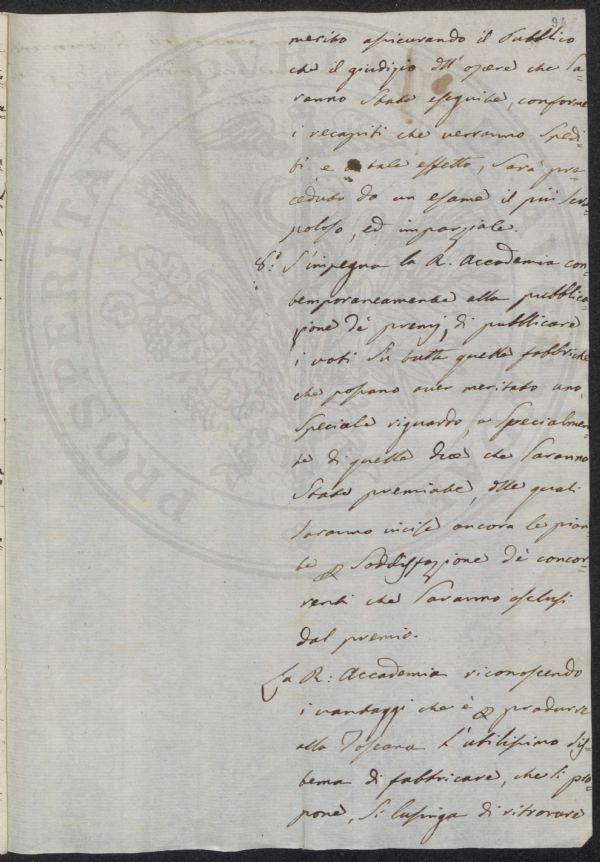 94
merito assicurando il Pubblico
che il giudizio dell'opere che sa=
ranno State eseguite, conforme
i recapiti che verranno Spedi=
ti e a tale effetto, Sarà pre=
ceduto da un esame il più scru=
poloso, ed imparziale.
8.° S'impegna la R. Accademia con=
temporaneamente alla pubblica=
zione de' premj, di pubblicare
i voti Su tutte quelle fabbriche
che possano aver meritato uno
Speciale riguardo, e Specialmen=
te di quelle due che Saranno
State premiate, delle quali
Saranno incise ancora le pian=
te p Soddisfazione de' concor=
renti che Saranno esclusi
dal premio.
La R: Accademia riconoscendo
i vantaggi che è p produrre
alla Toscana l'utilissimo Sis=
tema di fabbricare, che si pro=
pone, Si lusinga di ritrovare
PROSPERITATI PUBLICAE